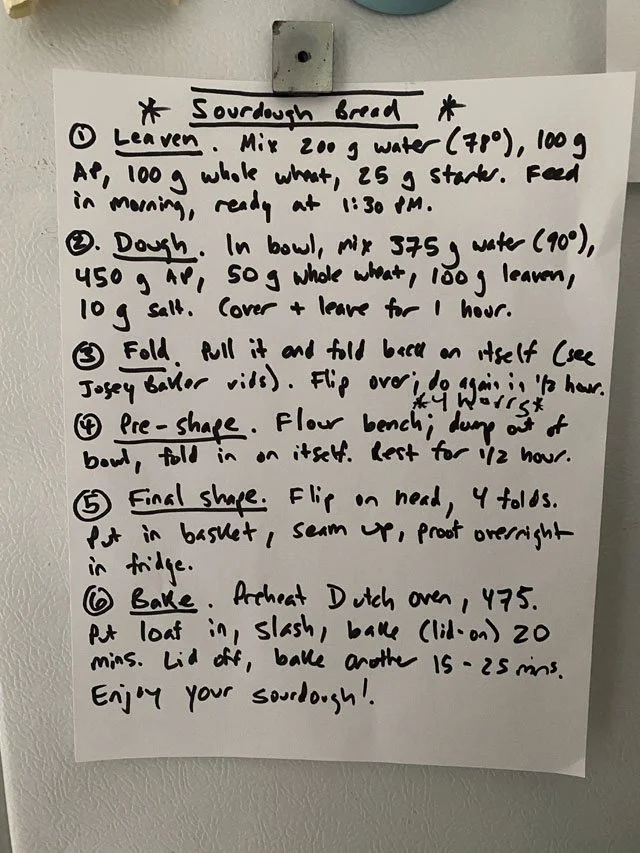 * Sourdough Bread *
① Leaven. Mix 200 g water (78°), 100 g
AP, 100 g whole wheat, 25 g starter. Feed
in morning, ready at 1:30 PM.
②. Dough. In bowl, mix 375 g water (90°),
450 g AP, 50 g whole wheat, 100 g leaven,
10 g salt. Cover + leave for 1 hour.
③ Fold. Pull it and fold back on itself (see
Josey Baker vids). Flip over; do again in 1/2 hour.
*4 hours*
④ Pre-shape. Flour bench; dump out of
bowl, fold in on itself. Rest for 1/2 hour.
⑤ Final shape. Flip on head, 4 folds.
Put in basket, seam up, proof overnight
in fridge.
⑥ Bake. Preheat Dutch oven, 475.
Put loaf in, slash, bake (lid-on) 20
mins. Lid off, bake another 15-25 mins.
Enjoy your sourdough!